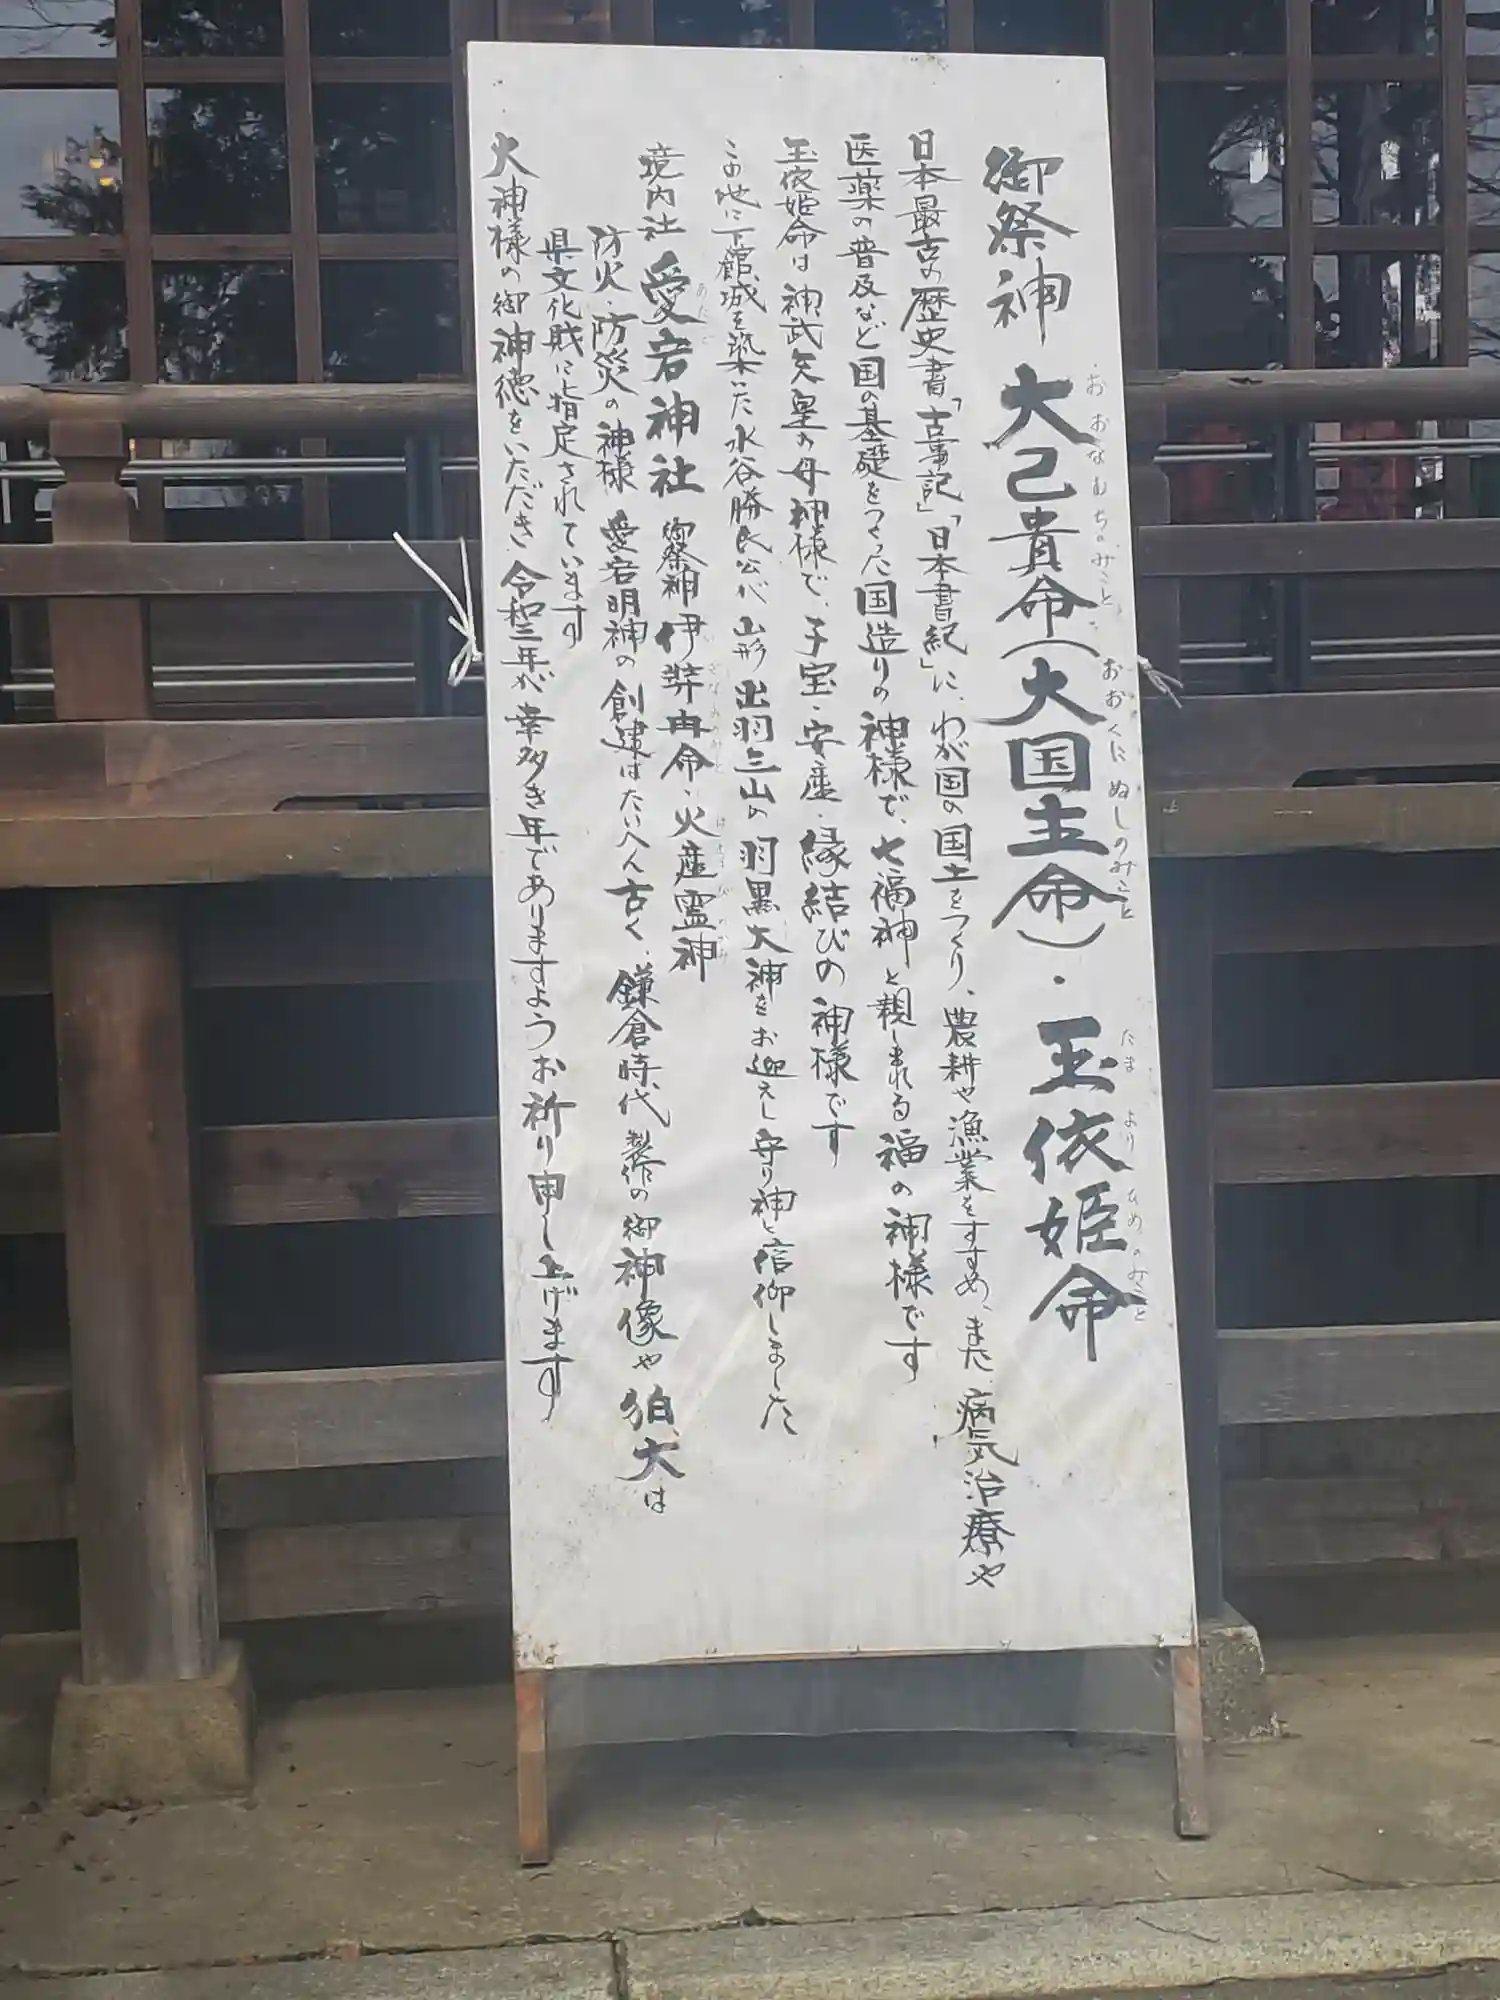 御祭神 大己貴命（大国主命）・玉依姫命
おおなむちのみこと おおくにぬしのみこと たまよりひめのみこと
日本最古の歴史書「古事記」「日本書紀」に、わが国の国土をつくり、農耕や漁業をすすめ、また、病気治療や
医薬の普及など国の基礎をつくった国造りの神様で、七福神と親しまれる福の神様です
玉依姫命は神武天皇の母神様で、子宝・安産・縁結びの神様です
この地に下館城を築いた水谷勝氏公が山形出羽三山の羽黒大神をお迎えし守り神と信仰しました
境内社 愛宕神社 御祭神 伊弉冉命・火産霊神
あたご いざなみのみこと ほむすびのかみ
防火・防災の神様 愛宕明神の創建はたいへん古く、鎌倉時代製作の御神像や狛犬は
県文化財に指定されています
大神様の御神徳をいただき令和三年が幸多き年でありますようお祈り申し上げます